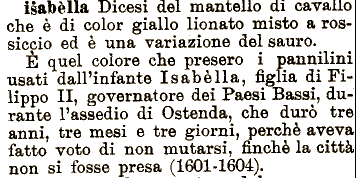 isabèlla Dicesi del mantello di cavallo
che è di color giallo lionato misto a ros-
siccio ed è una variazione del sauro.
È quel colore che presero i pannilini
usati dall'infante Isabèlla, figlia di Fi-
lippo II, governatore dei Paesi Bassi, du-
rante l'assedio di Ostenda, che durò tre
anni, tre mesi e tre giorni, perchè aveva
fatto voto di non mutarsi, finchè la città
non si fosse presa (1601-1604).